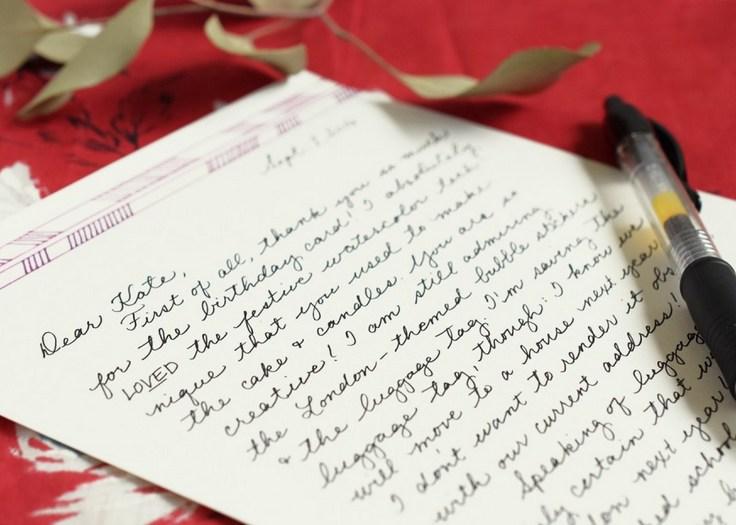 Sept.
Dear Kate,
First of all, thank you so much
for the birthday card! I absolutely
LOVED the festive watercolor tech
nique that you used to make
the cake & candles. You are so
creative! I am still admiring
the London-themed bubble stickers
& the luggage tag. I'm saving the
luggage tag, though: I know we
will move to a house next year
I don't want to render it obs
with our current address!
Speaking of luggage
certain that w
don next year!
ed school